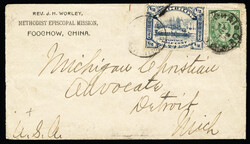 REV. J. H. WORLEY,
METHODIST EPISCOPAL MISSION,
FOOCHOW, CHINA.
Michigan Christian
Advocate
Detroit
Mich
U.S.A